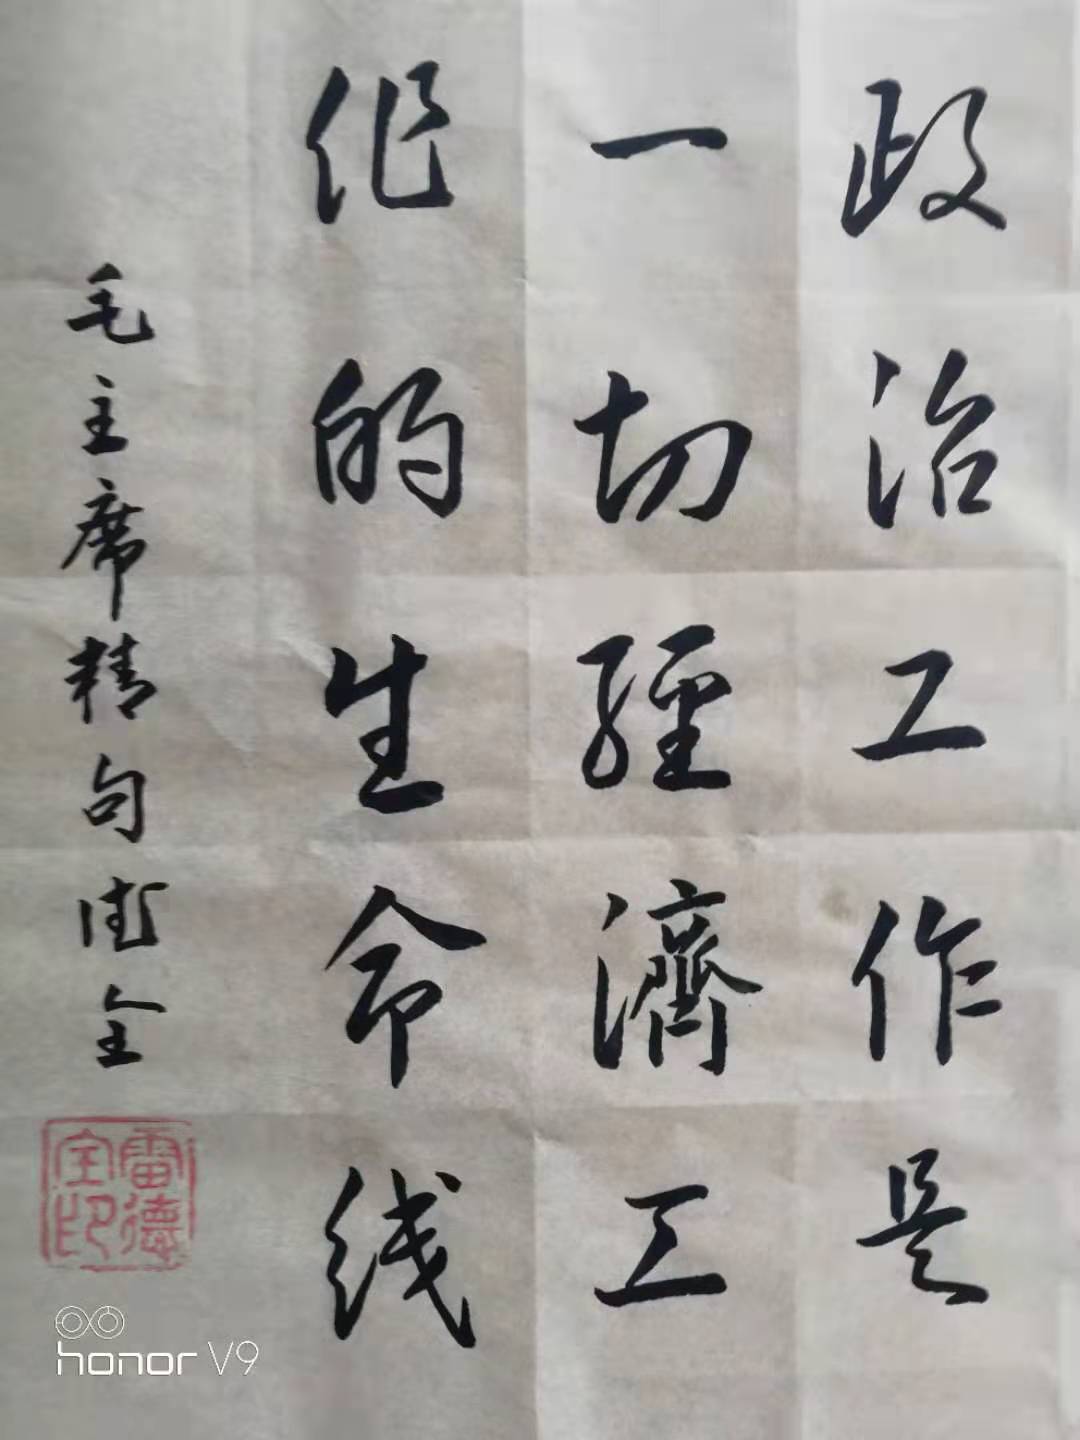 政治工作是
一切經濟工
作的生命线
毛主席精句德全
雷德全印
honor V9